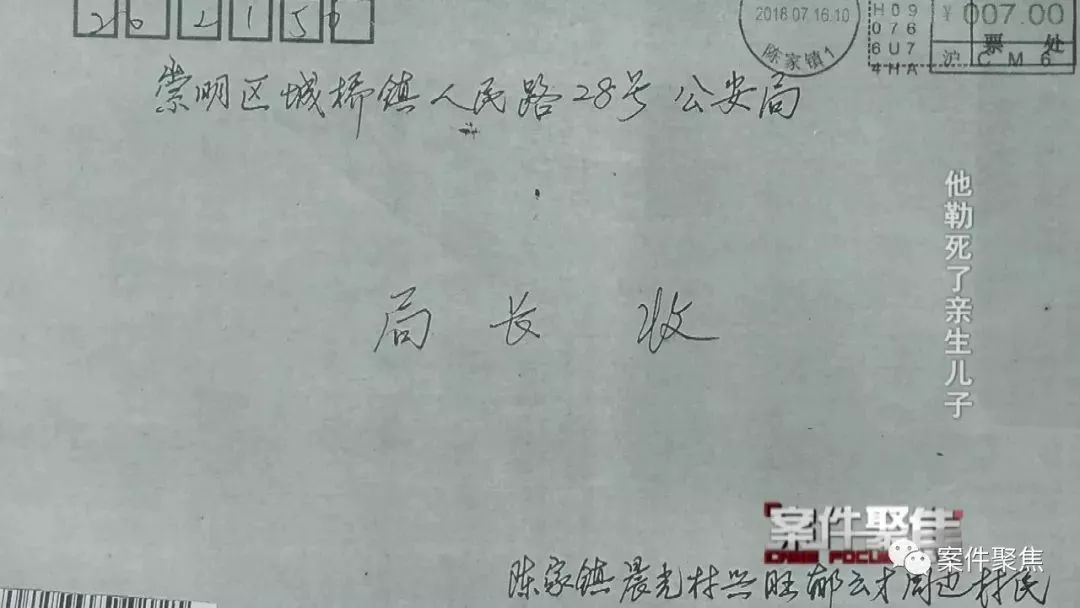 202150
2018.07.16.10
陈家镇1
H09
076
6U7
4HA
¥007.00
票 处
沪 CM6
崇明区城桥镇人民路28号 公安局
局 长 收
他勒死了亲生儿子
案件聚焦
CASE FOCUS
案件聚焦
陈家镇晨光村兴旺郁云才周边村民